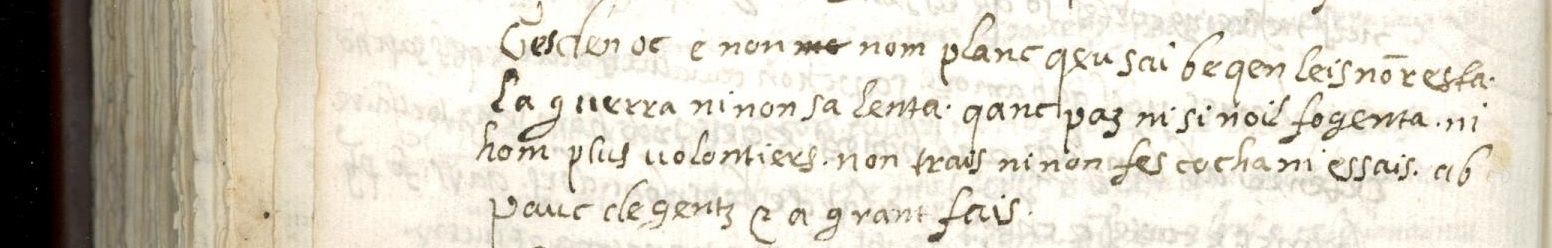 Ges den oc e non me nom planc qeu sai be qen leis nõ resta.
la guerra ni non sa lenta. qanc paz ni si noil fo genta. ni
hom plus uolontiers. non trais ni non fes cocha ni essais. ab
pauc de gentz & a grant fais.